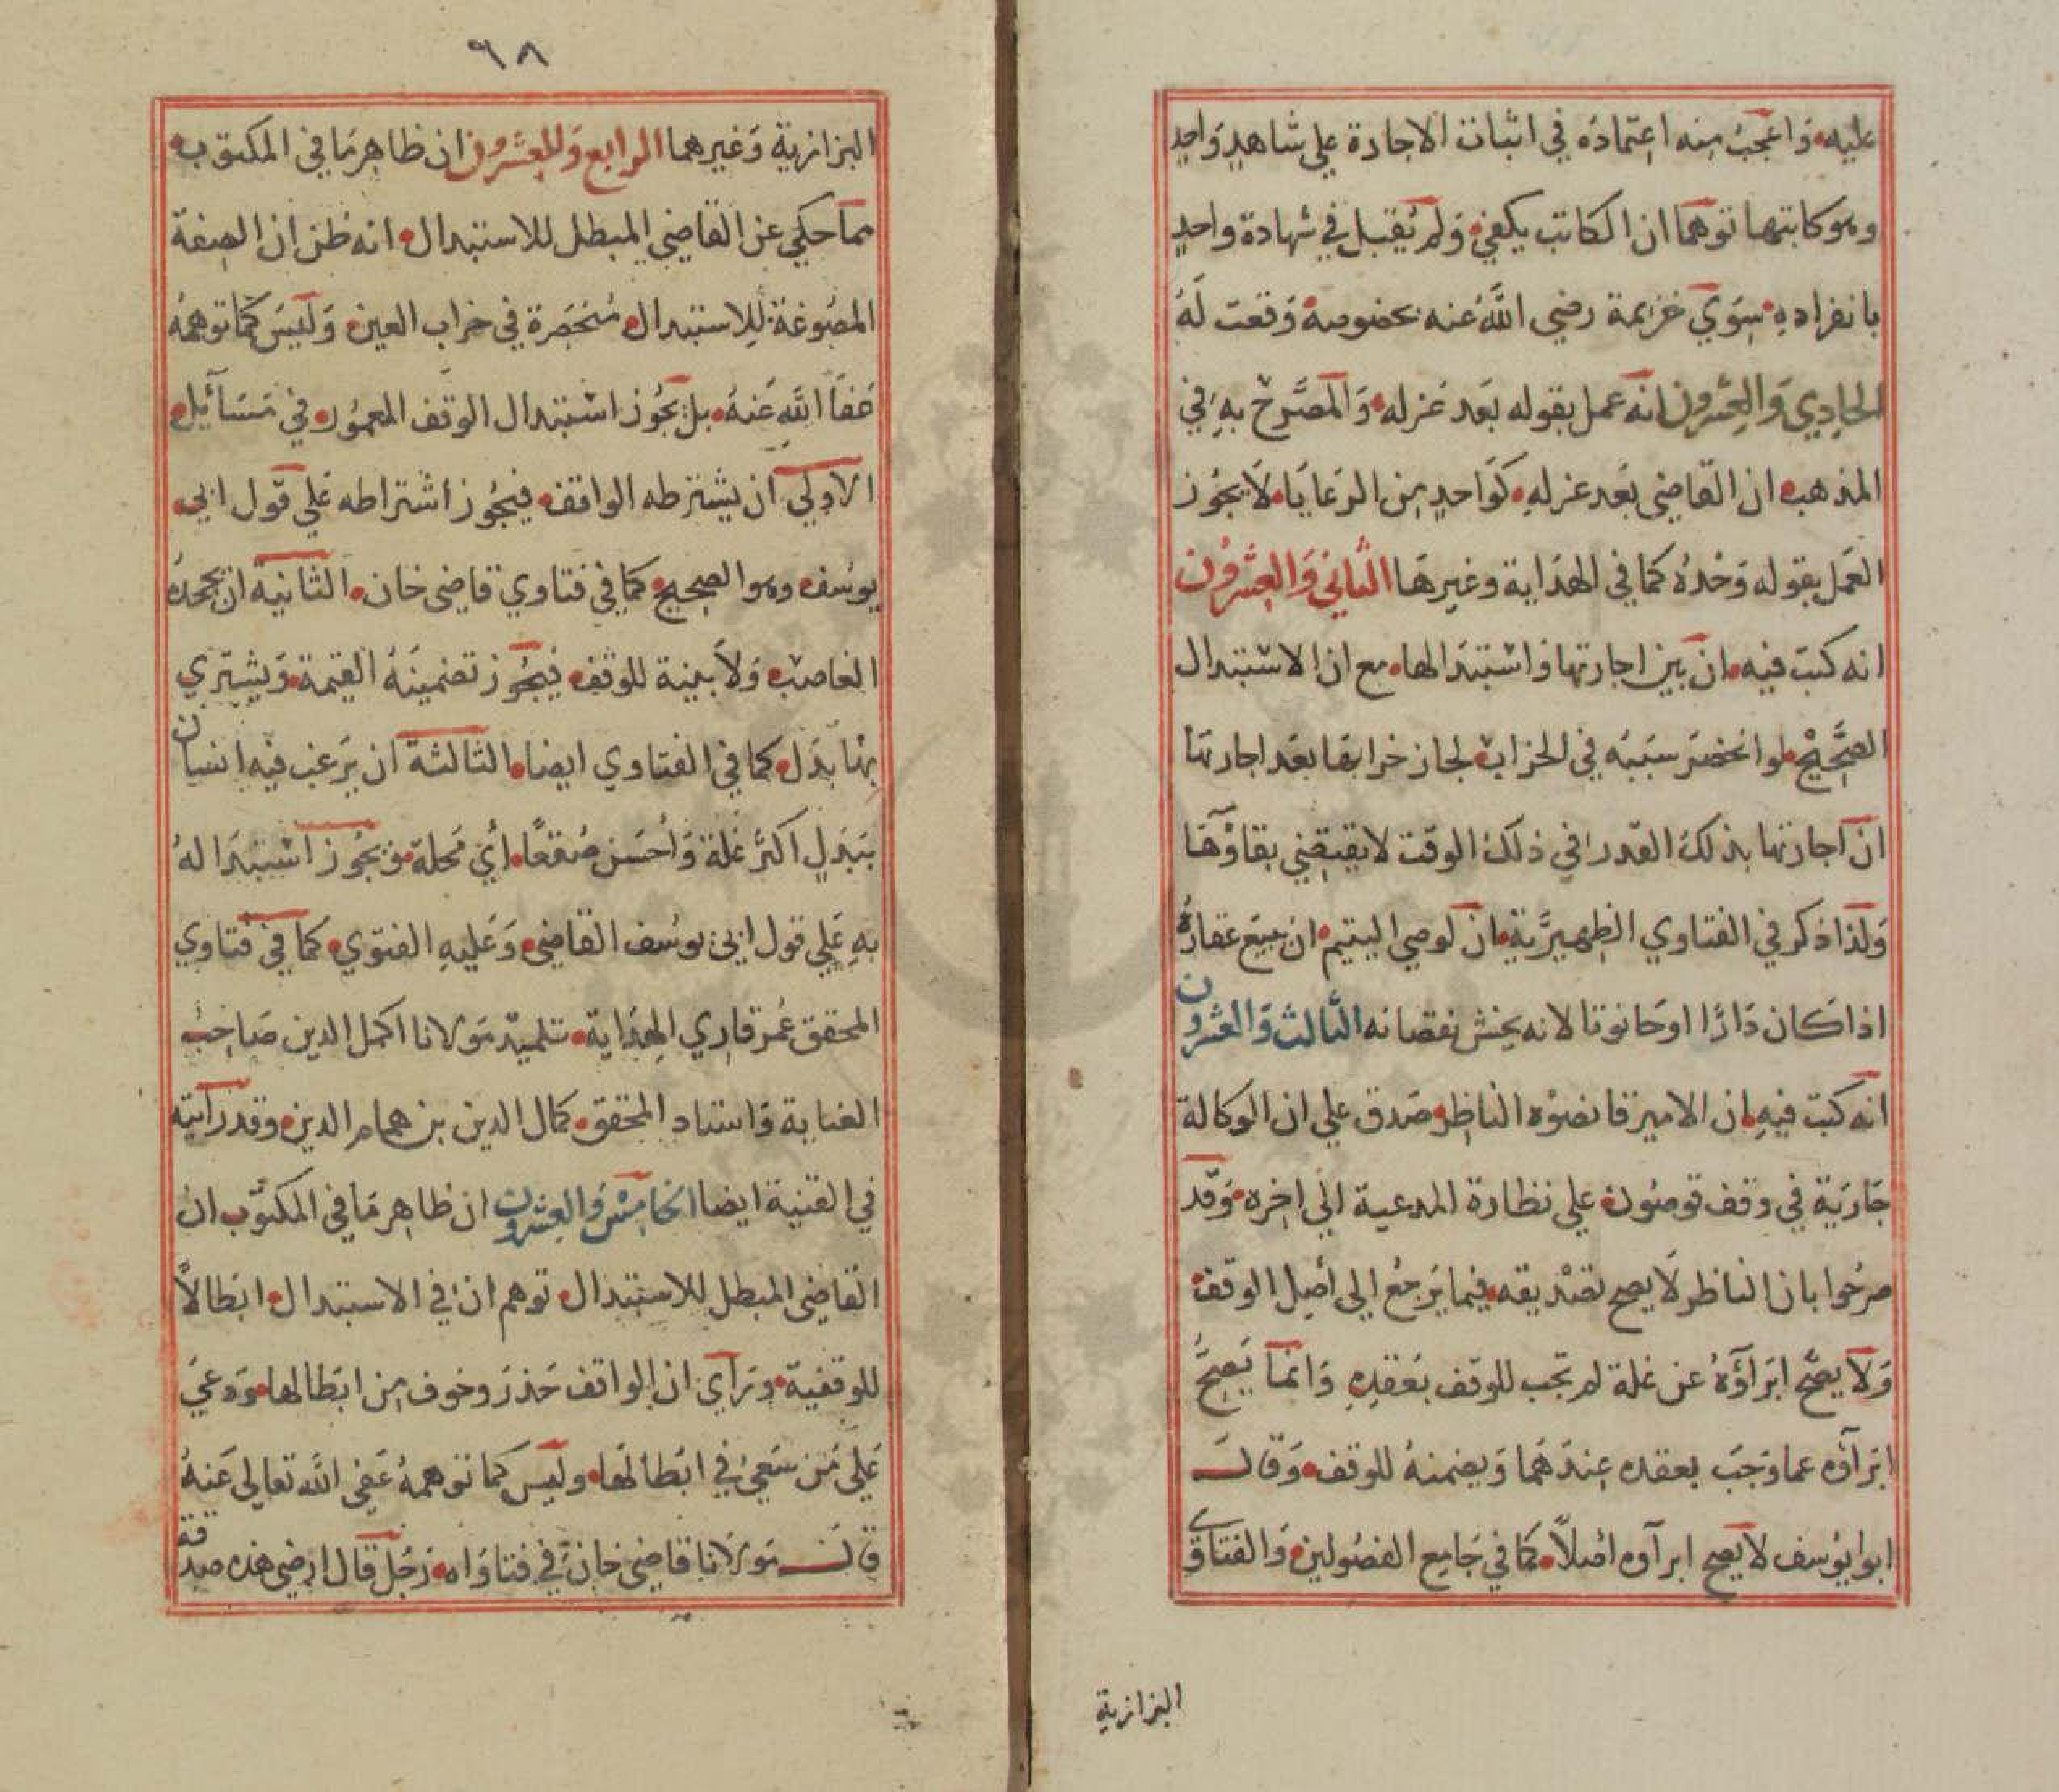 عليه وَاعجَبُ مِنه اعتمادَه في اثبات الاجارة علي شاهدٍ وَاحدٍ
وهو كاتبها توهما ان الكاتب يكفي وَلم يُقبل في شهادة واحدٍ
بانفرادهِ سِوَي خزيمة رضي اللَّهُ عَنه بخصوصه وَقعت لَهُ
الحادِي وَالعِشرُون انه عمل بقوله بَعد عَزله وَالمصَّرح بهِ في
المذهب ان القاضي بَعد عزلهِ كوَاحدٍ مِن الرَعايَا لَا يجُوز
العَمل بقوله وَحْدهُ كما في الهدَاية وغيرهَا الثاني وَالعِشرُون
انه كتبَ فيه ان بَين اجارتها وَاستبدَالها مع ان الاستبدال
الصَّحِيْح لو انحصَر سبَبَه في الخراب لجاز خرابها بعَد اجارتها
ان اجارتها بذلك القدر في ذلك الوقت لا يقتضي بقاؤهَا
وَلذا ذكر في الفتاوي الظهيريَّة ان لوصي اليتيم ان يبيَع عقارهُ
اذا كان دَارًا او حَانوتا لانه يخش نقصانه الثالث وَالعشرُون
انه كتبَ فيهِ ان الامير قانصوْه الناظر صَدق علي ان الوكالة
جَاريَة في وقف قوصُون علي نظارة المدعية الي اخره وَقد
صرحُوا بان الناظر لا يصح تصْديقه فيما يَرجعُ الي أصل الوقف
وَلا يصحّ ابَراؤهُ عن غلة لم تجب للوقف بعَقدِهِ وَانما يَصحُّ
ابَراؤه عما وَجَبَ بعقده عِندَهمَا وَيضمنهُ للوقف وَقالَ
ابوا يوُسف لا يصح ابرآوه اصلاً كما في جَامع الفصُولين وَالفتاوي
البزازية
٩٨
البزازية وَغيرهما الرابع وَالعِشرُون ان ظاهر مَا في المكتوب
مما حكي عن القاضِي المبطل للاستبدال انه ظن ان الصِفة
المصَوغة للِاستبدال مُنحَصَرة في خراب العين وَليسَ كما توهمهُ
عَفا اللَّه عَنهُ بل يجُوز استبدال الوقف المعمُور في مَسَآئيل
الاولي ان يشترطه الواقف فيجُوز اشتراطه عَلي قوْل ابي
يوسُف وهو الصحِيح كما في فتاوي قاضي خان الثانية ان يجحدُه
الغاصب وَلاَ بينة للوقف فيجُوز تضمينَهُ القيمة وَيشتري
بهَا بَدَل كما في الفتاوي ايضا الثالثة ان يَرغب فيهِ انسان
ببَدلٍ اكثر غلة وَأحسَن صُقعًا أي مَحلة وَيجُوز استبدَالهُ
بهِ عَلي قول ابي يوسُف القاضي وَعَليهِ الفتوي كما في فتاوي
المحقق عُمر قاري الهدَاية تلميذ مَولانا اكمل الدين صَاحِب
العناية وَاستاد المحقق كمال الدين بن همام الدين وقد رَايته
في القنية ايضا الخامسْ وَالعِشرُون ان ظاهر مَا في المكتوُب ان
القاضي المبطل للاستبدال توهم ان في الاستبدال ابطالاً
للوقفية وَرَأي ان الواقف حَذرَ وخوف مِن ابَطالها وَدعيَ
عَلي مَن سَعيَ في ابَطالها وليس كما توهمهُ عَفي اللَّه تعالي عَنهُ
قالَ مَولانا قاضي خان في فتاوَاه رَجُل قال ارضِي هذه صدقة